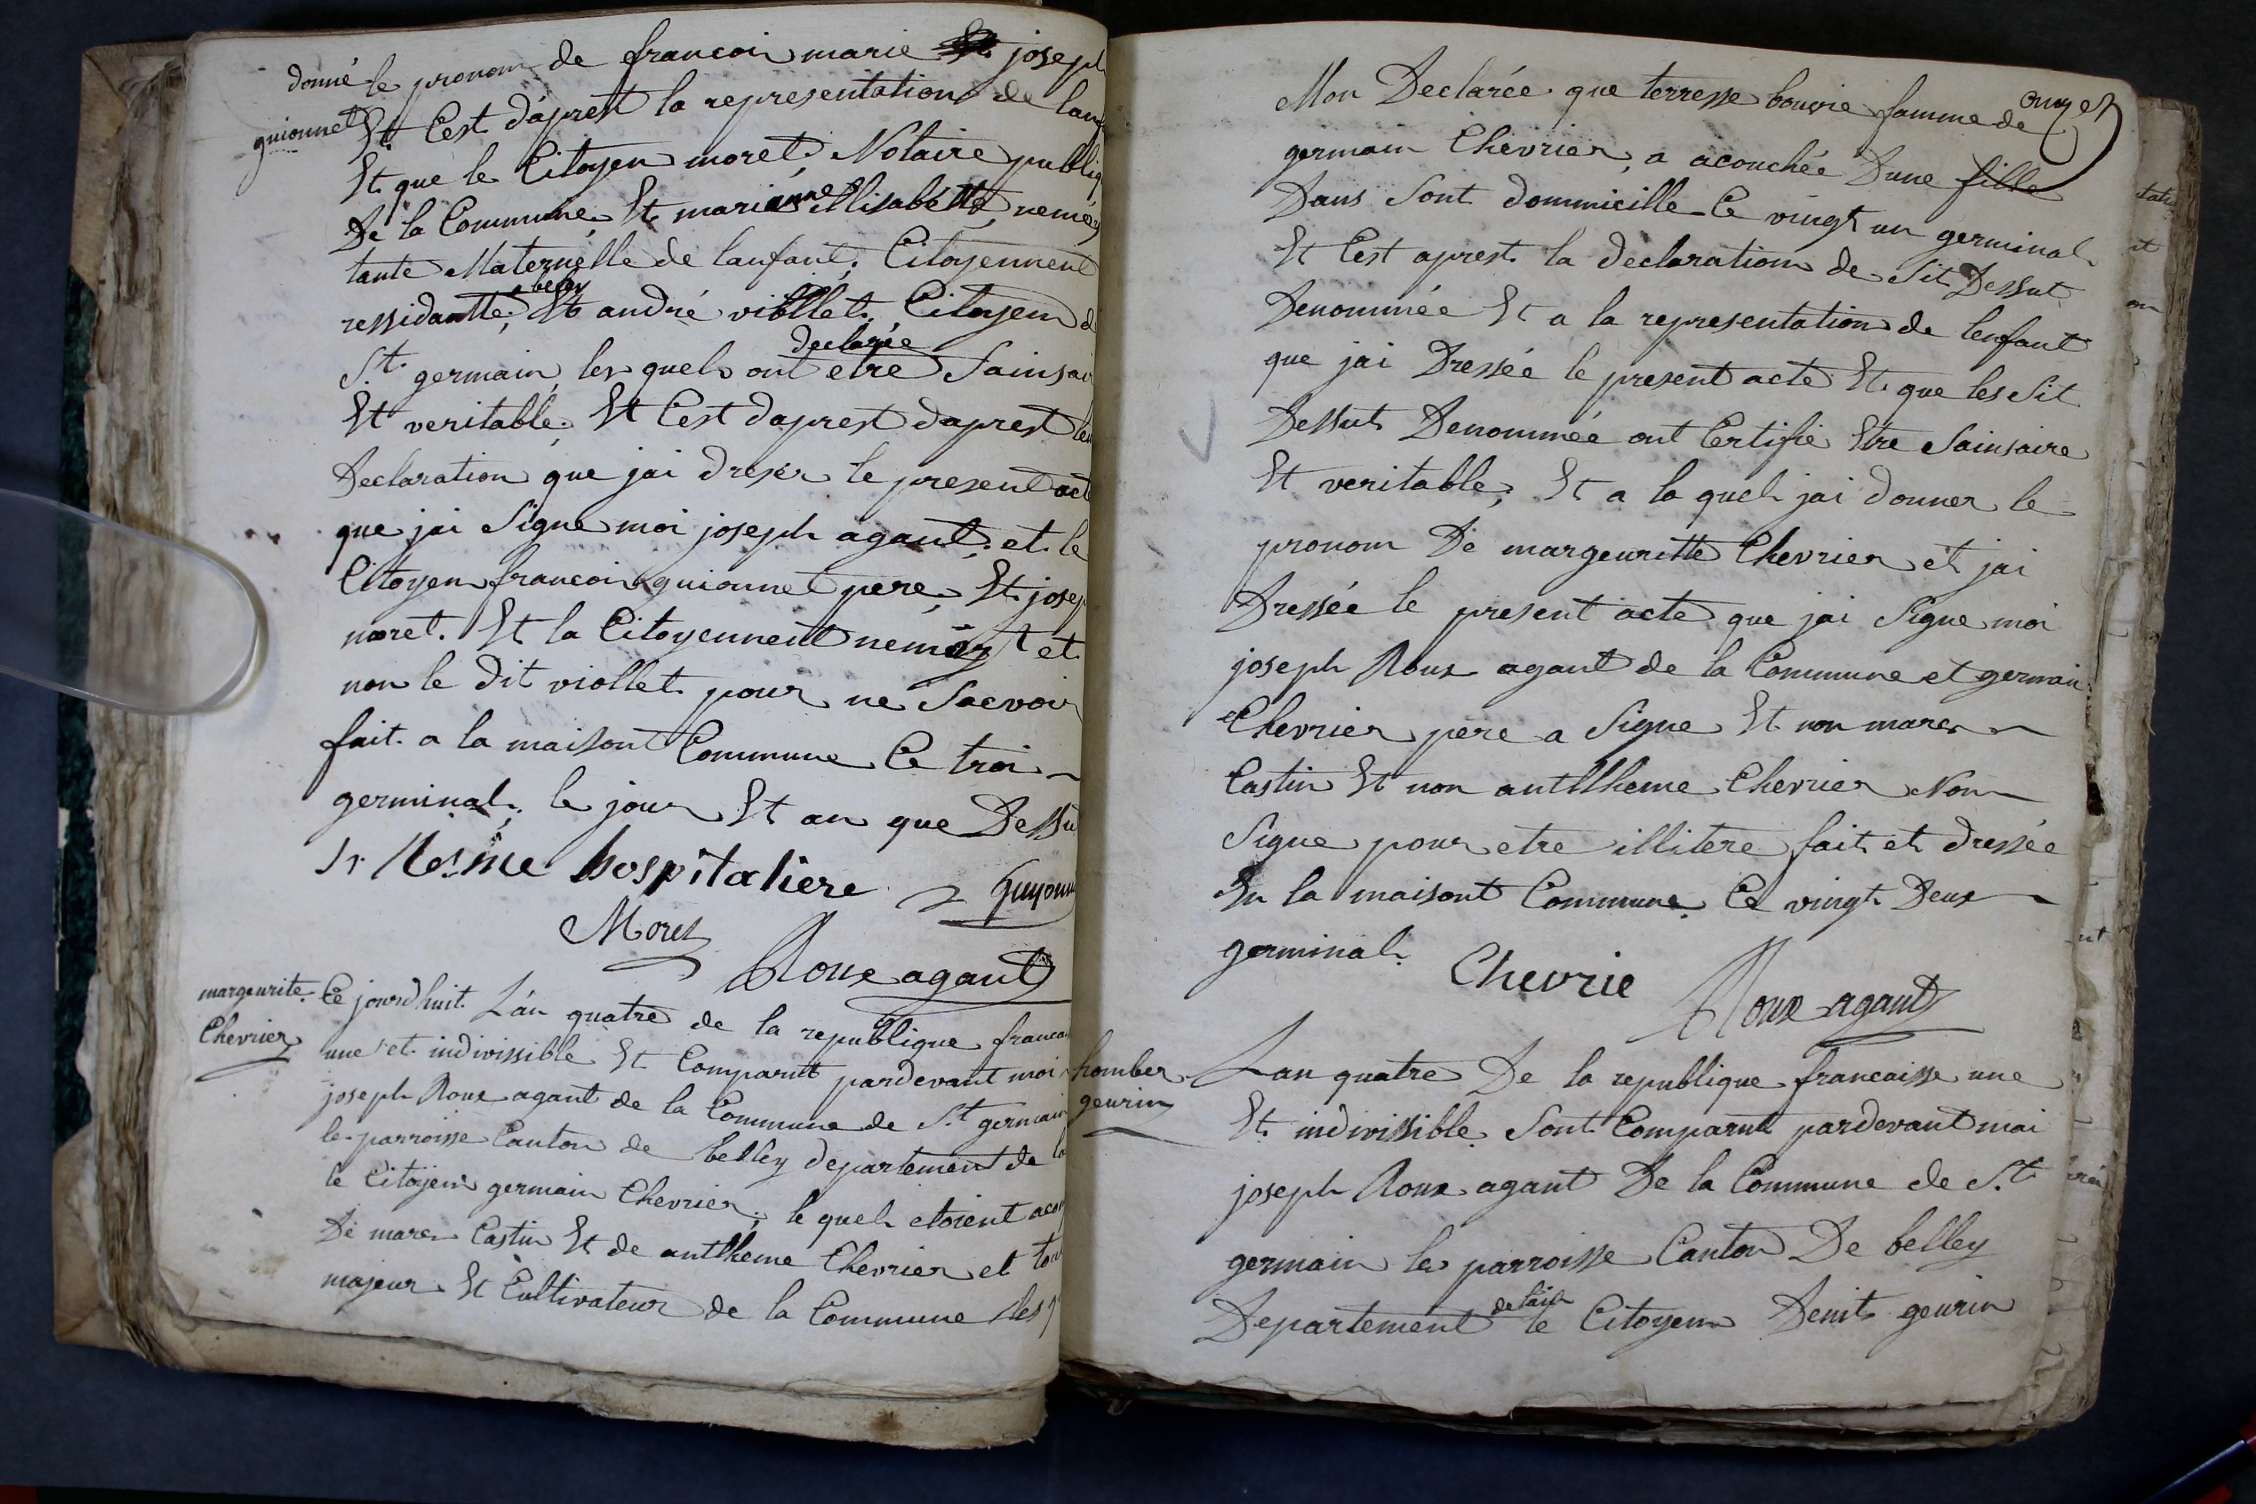 donné le pronom de francoi marie joseph
guionnet Et Cest dáprest la representation de lanf
Et que le Citoyen moret, Notaire publiq
De la Commune, Et marianne Ellisabétte, nemé
tante Maternélle de lanfant, Citoyennent
belley
ressidantte, Et andré viollet. Citoyen d
declarée
St. germain les quels ont etre Sainsai
Et veritable, Et Cest daprest daprest leu
Declaration que jai dreser le present act
que jai Signe moi joseph agant, et le
Citoyen francoi guionnet pere, Et josep
moret. Et la Citoyennent nemé et
non le dit viollet pour ne Saevoir
fait a la maisont Commune Ce troi
germinal, le jour Et an que Dessu
Sr Nesme hospitaliere
guyonn
Moret
Roux agant
margeurite
Chevrier
Ce jourdhuit L'án quatre de la republique francai
une et indivissible Et Comparut pardevant moi
joseph Roux agant de la Commune de St. germain
les parroisse Canton de belley departement de la
le Citöyen germain Chevrier, le quel etoient acom
De marc Castin Et de antlheme Chevrier et tou
majeur Et Cultivateur de la Commune les q
Mon Declarée que terresse bouvie famme de
germain Chevrier, a acouchée Dune fille
Dans Sont dommicille Ce vingt un germinal
Et Cest aprest la declaration de Sit Dessut
Denommée Et a la representation de lenfant
que jai Dressée le present acte Et que les Sit
Dessut Denommée ont Certifie Etre Sainsaire
Et veritable, Et a la quel jai donner le
pronom De margeuritte Chevrier et jai
Dressée le present acte que jai Signe moi
joseph Roux agant de la Commune et germain
Chevrier pere a Signe Et non marc
Castin Et non antlheme Chevrier Non
Signe pour etre illitere fait et dressée
En la maisont Commune Ce vingt Deux
germinal.
Chevrie
Roux agant
homber
geurin
Lan quatre De la republique francaisse une
Et indivissible Sont Comparut pardevant moi
joseph Roux agant De la Commune de St.
germain les parroisse Canton De belley
de lain
Departement le Citoyen Denit geurin